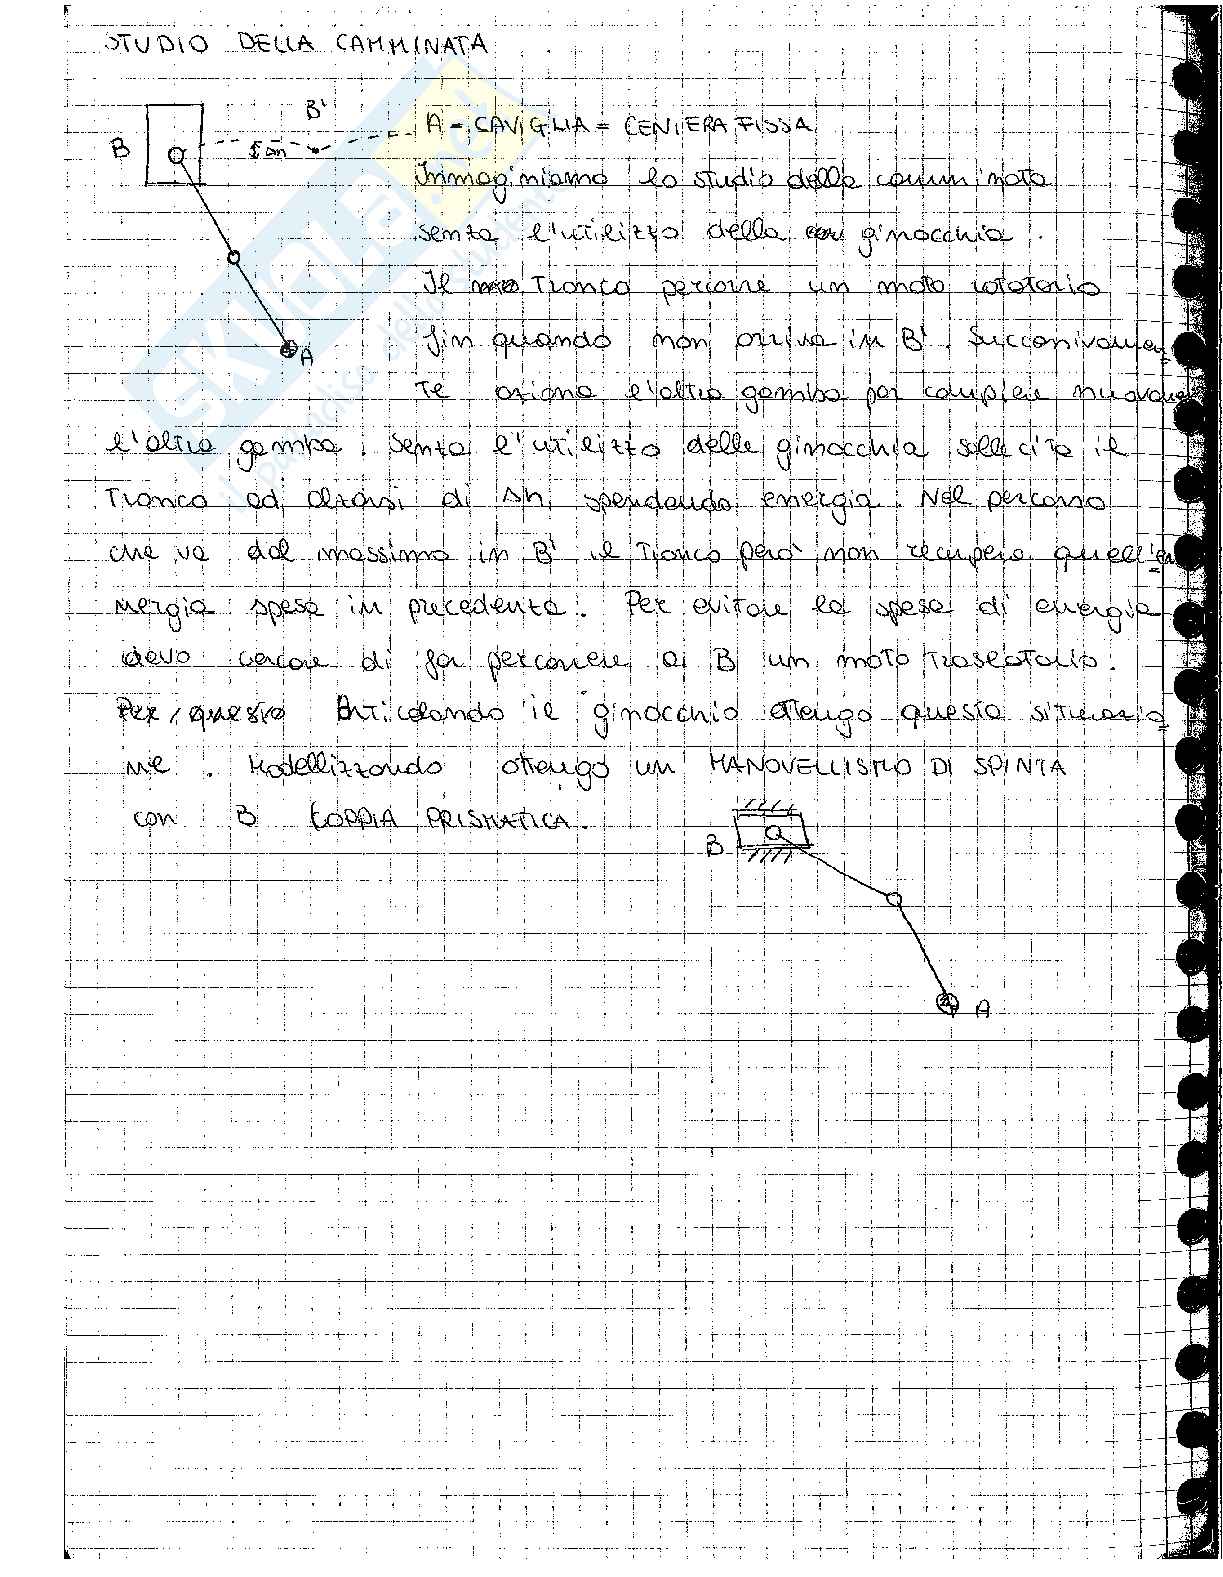 STUDIO DELLA CAMMINATA
B'
A - CAVIGLIA = CENIERA FISSA
B
Δh
Immaginiamo lo studio della camminata
senza l'utilizzo della ginocchia.
Il Tronco percorre un moto rotatorio
A
fin quando non arriva in B'. Successivamen
te aziono l'altra gamba per compiere
l'altra gamba. Senza l'utilizzo delle ginocchia sollecito il
Tronco ad alzarsi di Δh, spendendo energia. Nel percorso
che va dal massimo in B' il Tronco però non recupera quell'e
nergia spesa in precedenza. Per evitare la spesa di energia
devo cercare di far percorrere a B un moto traslatorio.
Per questo Articolando il ginocchio ottengo questa situazio
ne. Modellizzando ottengo un MANOVELLISMO DI SPINTA
con B COPPIA PRISMATICA.
B
A
SKUOLA.net